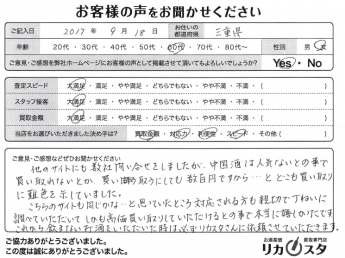 お客様の声をお聞かせください
ご記入日 2017年 9月 18日 お住いの都道府県 三重県
年齢 20代・30代・40代・50代・60代・70代・80代〜 性別 男・女
ご意見・ご感想を弊社ホームページにお客様の声として掲載させて頂いてもよろしいでしょうか? Yes・No
査定スピード 大満足・満足・やや満足・どちらでもない・やや不満・不満・( )
スタッフ接客 大満足・満足・やや満足・どちらでもない・やや不満・不満・( )
買取金額 大満足・満足・やや満足・どちらでもない・やや不満・不満・( )
当店をお選びいただきました決め手は? 買取金額・対応力・利便性・スピード・その他( )
ご意見・ご感想などぜひお聞かせください
他のサイトにも数社問い合せをしましたが、中国酒は人気ないとの事で
買い取れないとか、買い取り取るにしても数百円ですから…とどこも買取り
に難色を示していました。
こちらのサイトも同じかな…と思っていたところ対応される方も親切で丁ねいに
調べていただいてしかも高価買い取りしていただけるとの事で本当に嬉しかったです
これから飲まないお酒をいただいた時は、必ずリカスタさんに依頼させていただきます。
ご協力ありがとうございました。
この度は誠にありがとうございました。
お酒高価 買取専門店
リカスタ